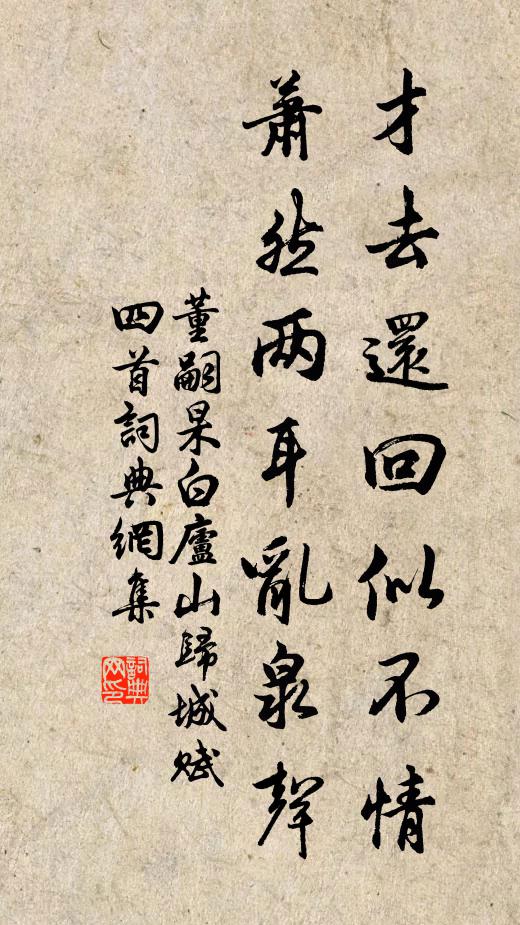 才去還回似不情
蕭然两耳亂泉聲
董嗣杲白廬山歸城賦
四首詞典網集
詞典
网印